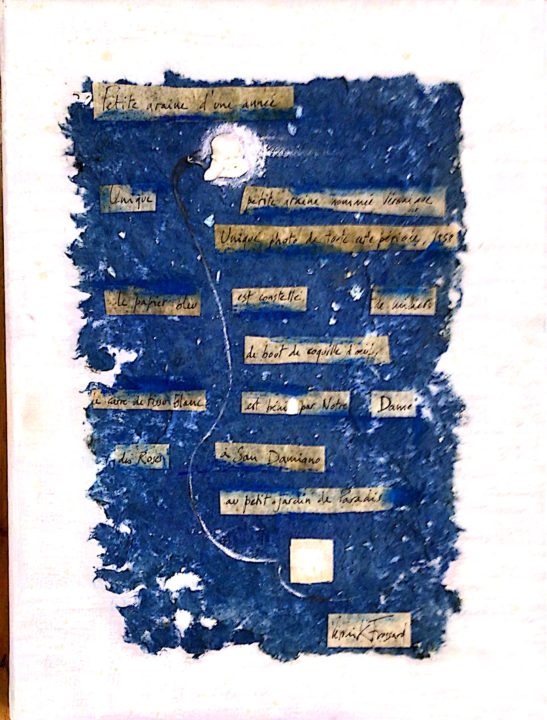 Petite graine d'une année
Unique petite graine nommée Véronique
Unique photo de toute cette période, 1959
le papier bleu est constellé de
de bout de coquille d'oeuf,
le carré de tissu Blanc est béni par Notre Dame
des Roses à San Damiano
au petit jardin de Paradis
Frossard